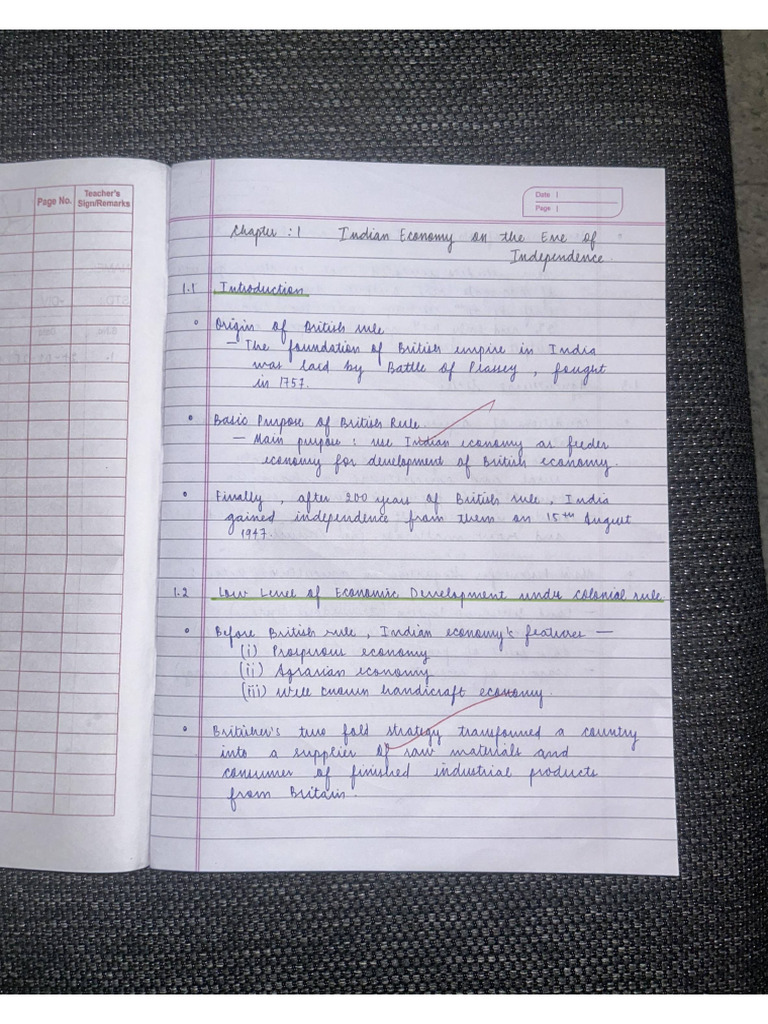 Page No.
Teacher's
Sign/Remarks
Date
Page
Chapter : 1 Indian Economy on the Eve of
Independence.
1.1 Introduction
Origin of British rule
– The foundation of British empire in India
was laid by Battle of Plassey, fought
in 1757.
Basic Purpose of British Rule
– Main purpose : use Indian economy as feeder
economy for development of British economy.
Finally, after 200 years of British rule, India
gained independence from them on 15th August
1947.
1.2 Low Level of Economic Development under colonial rule
Before British rule, Indian economy's features –
(i) Prosperous economy
(ii) Agrarian economy
(iii) Well known handicraft economy.
Britisher's two fold strategy transformed a country
into a supplier of raw materials and
consumer of finished industrial products
from Britain.